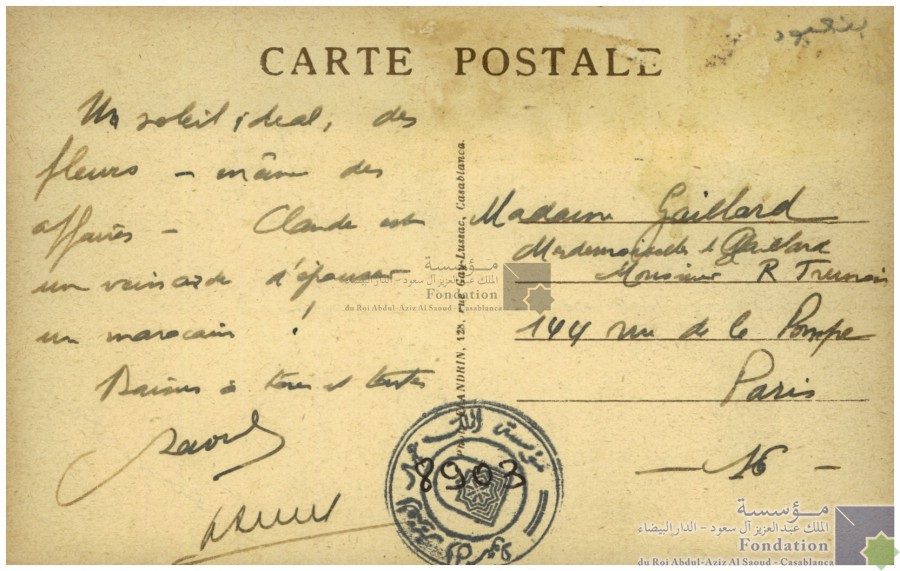 CARTE POSTALE
Un soleil ideal, des
fleurs - même des
affaires - Claude est
un veinarde d'épouser
un marocain !
Baisers à tous et toutes
Raoul
Madame Gaillard
Mademoiselle Gaillard
Monsieur R
144 rue de la Pompe
Paris
- 16 -
ANDRIN, 128, rue Gay-Lussac, Casablanca.
مؤسسة
الملك عبد العزيز آل سعود - الدار البيضاء
Fondation
du Roi Abdul-Aziz Al Saoud - Casablanca
8903
مؤسسة الملك عبد العزيز آل سعود
مؤسسة
الملك عبد العزيز آل سعود - الدار البيضاء
Fondation
du Roi Abdul-Aziz Al Saoud - Casablanca